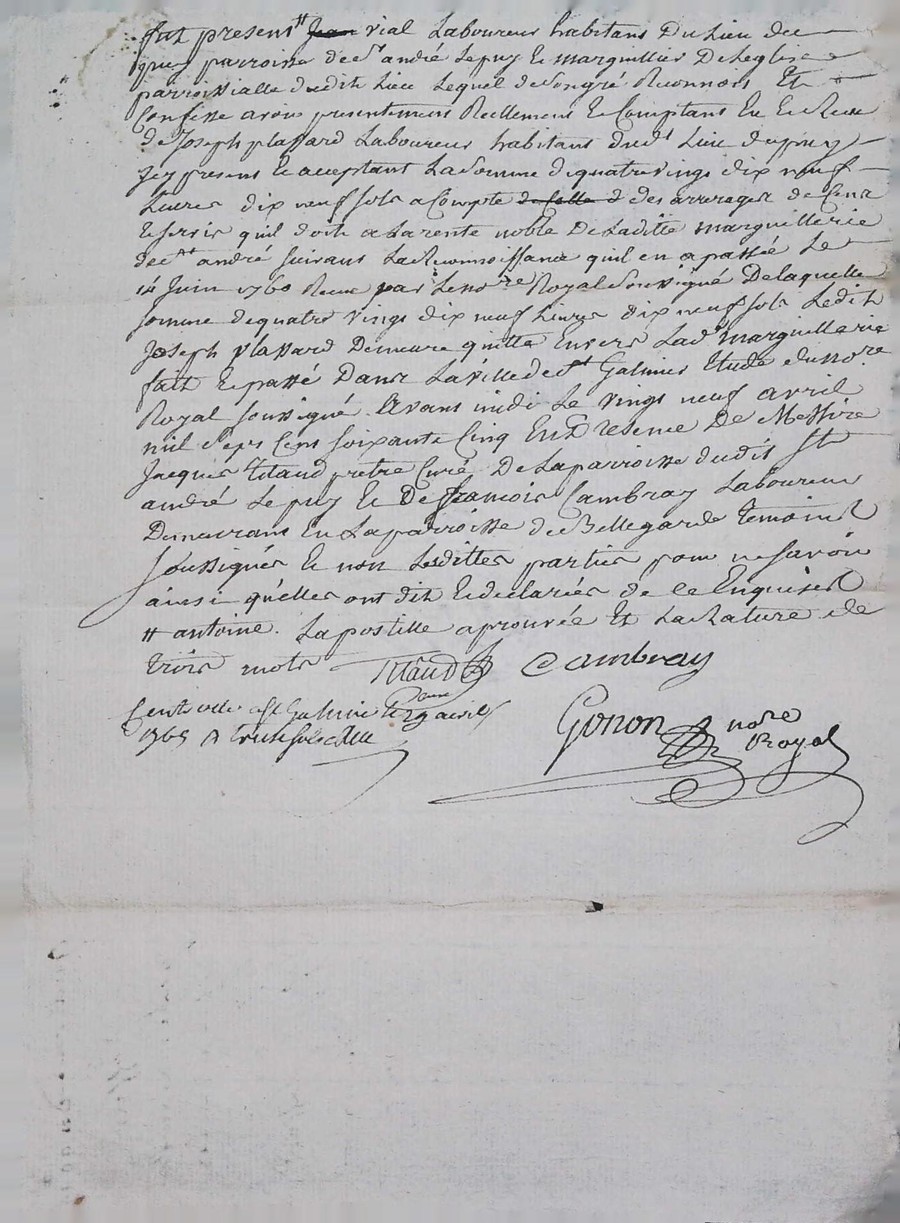 fut present # Jean vial Laboureur habitant Du Lieu de
parroisse de st andré Lepuy et marguillier De Leglise
parroissialle dudit Lieu Lequel de son gré Reconnoit Et
Confesse avoir presentement Reellement et Comptant Eu et Receu
de Joseph plassard Laboureur habitant dudt Lieu dupuy
Jcy present et acceptant La somme de quatre vingt dix neuf
Livres dix neuf sols a Compte de celle d des arrerages de Cens
et servis quil doit a La rente noble De Laditte marguillerie
de st andré suivant La Reconnoissance quil en a passée Le
14 Juin 1760 Recue par Le nore Royal Soussigné De laquelle
somme de quatre vingt dix neuf Livres dix neuf sols Ledit
Joseph plassard Demeure quitte Envers Lad marguillerie
fait et passé Dans La ville de st Galmier Etude du nore
Royal soussigné avant midi Le vingt neuf avril
mil sept Cent soixante Cinq En Presence De Messire
Jacques Titaud pretre Curé De La parroisse dudit St
andré Le puy et De francois Cambray Laboureur
Demeurant En La parroisse de Bellegarde temoins
soussignés et non Lesdittes parties pour ne savoir
ainsi qu'elles ont dit et declarées de ce Enquises
# antoine. La postille aprouvée Et La Rature de
trois mots Titaud Cambray
Gonon nore
Royal
1765 R treize sols